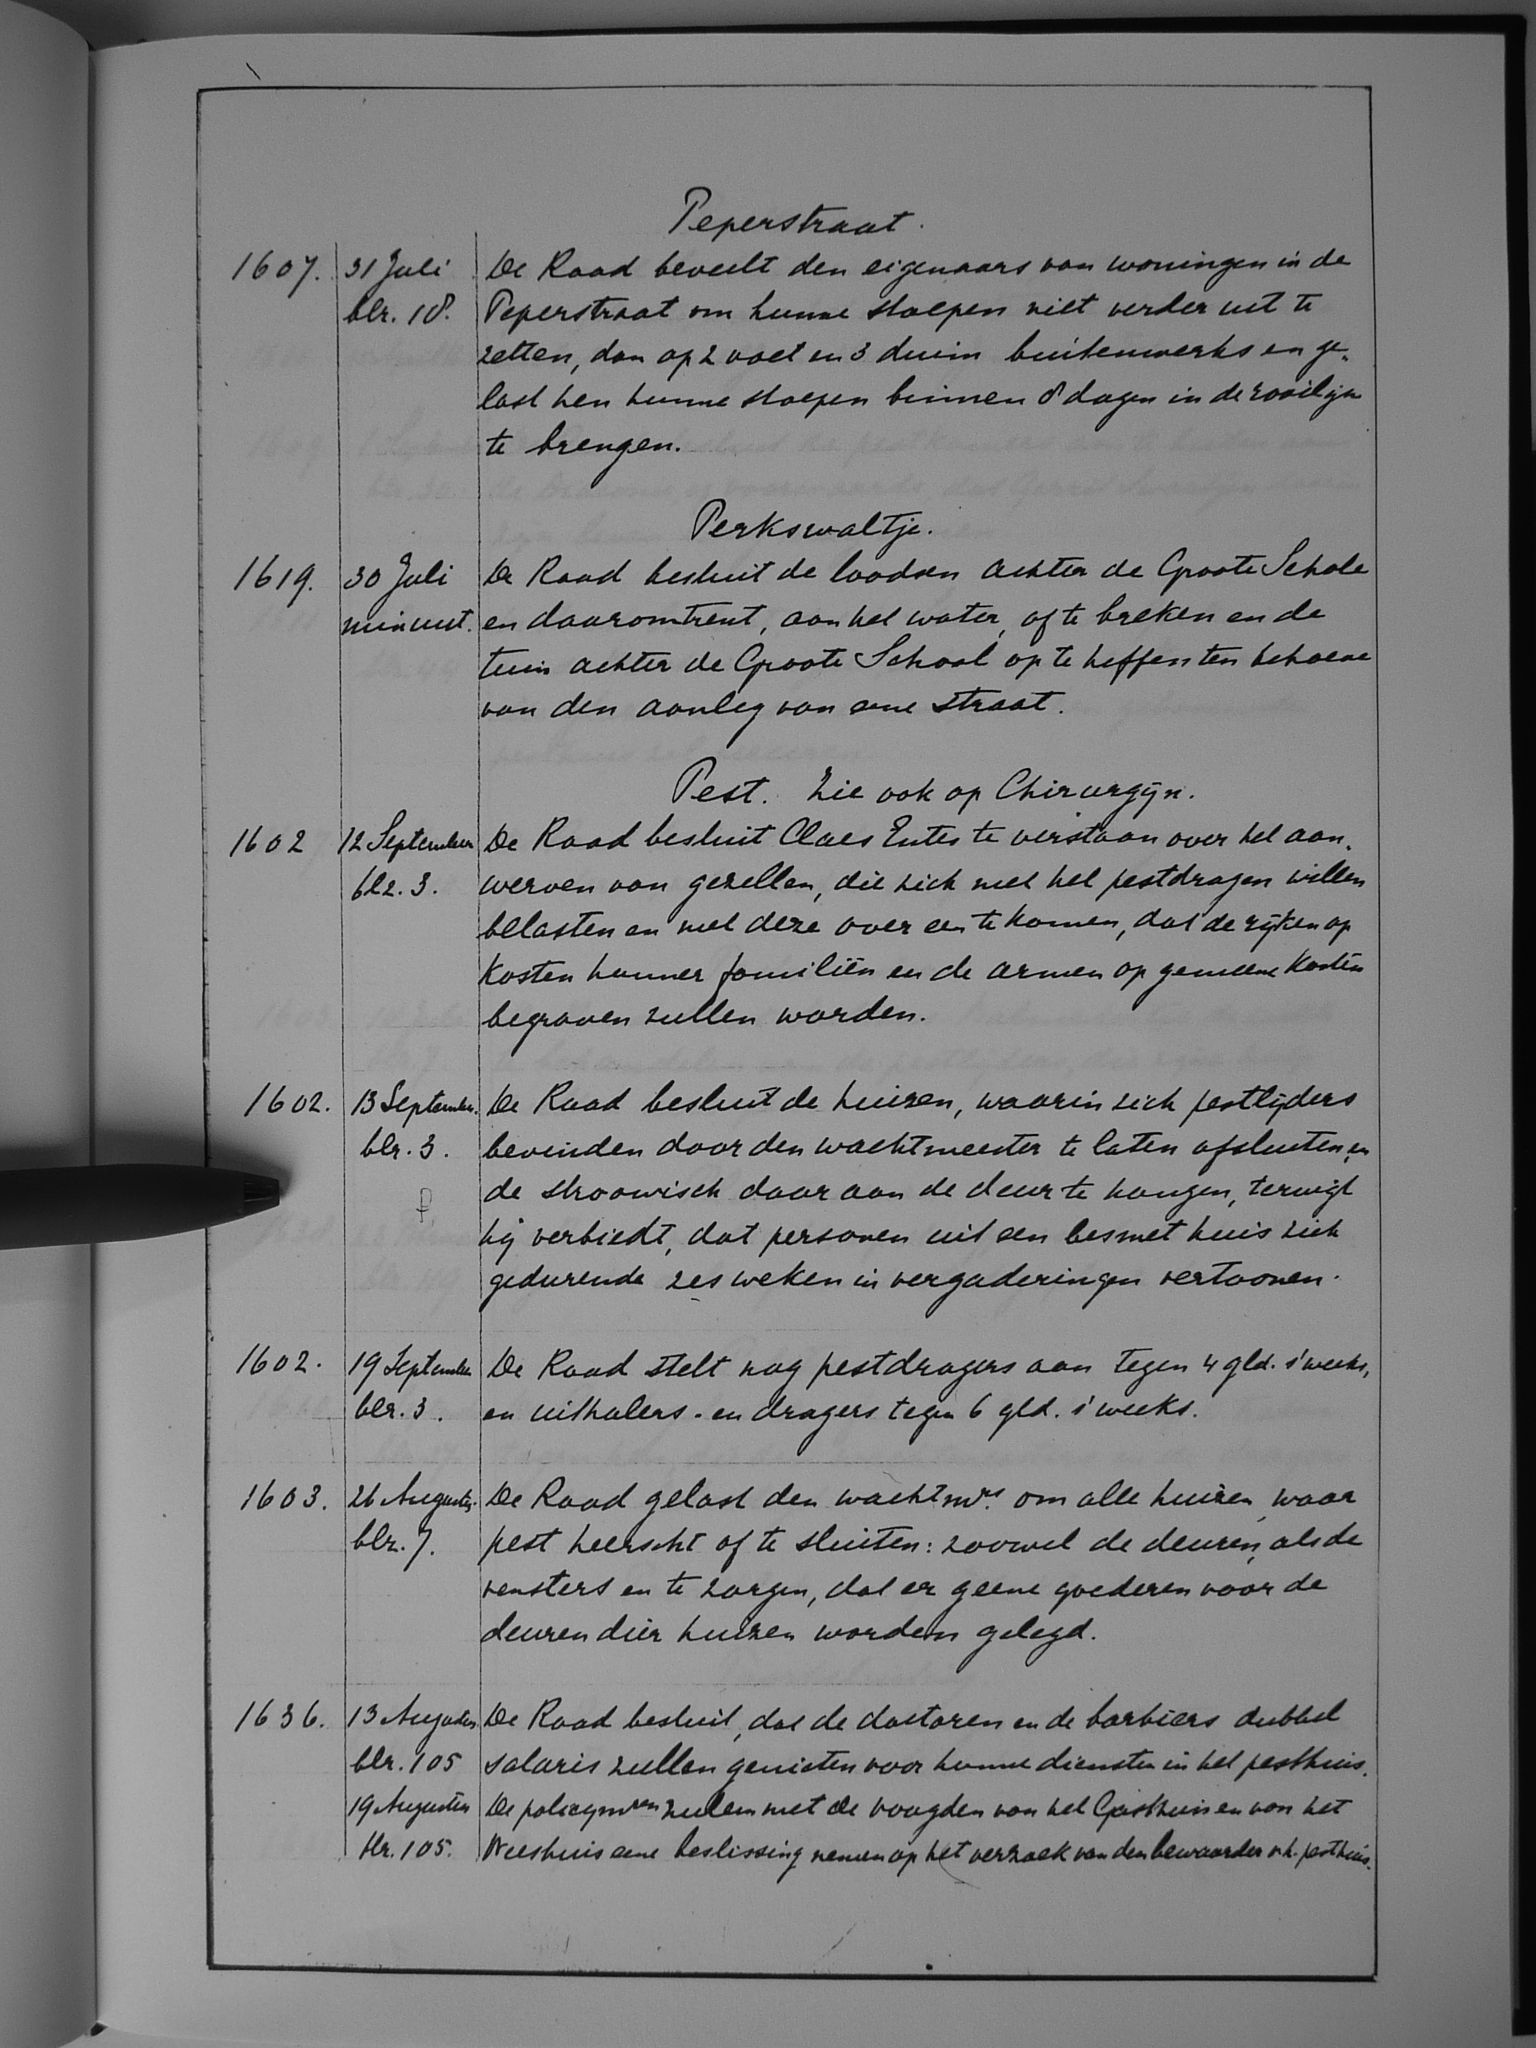 Peperstraat.
1607. 31 Juli De Raad beveelt den eigenaars van woningen in de
blz. 18. Peperstraat om hunne stoepen niet verder uit te
zetten, dan op 2 voet en 3 duim buitenwerks en ge-
last hen hunne stoepen binnen 8 dagen in de rooilijn
te brengen.
Perkswaltje.
1619. 30 Juli De Raad besluit de loodsen achter de Groote Schole
minuut. en daaromtrent, aan het water, af te breken en de
tuin achter de Groote School op te heffen ten behoeve
van den aanleg van eene straat.
Pest. Zie ook op Chirurgijn.
1602 12 September De Raad besluit Claes Entes te verstaan over het aan-
blz. 3. werven van gezellen, die zich met het pestdragen willen
belasten en met deze over een te komen, dat de rijken op
kosten hunner familiën en de armen op gemeene kosten
begraven zullen worden.
1602. 13 September. De Raad besluit de huizen, waarin zich pestlijders
blz. 3. bevinden door den wachtmeester te laten afsluiten en
de stroowisch daar aan de deur te hangen, terwijl
hij verbiedt, dat personen uit een besmet huis zich
gedurende zes weken in vergaderingen vertoonen.
1602. 19 September De Raad stelt nog pestdragers aan tegen 4 gld. s'weeks,
blz. 3. en uithalers- en dragers tegen 6 gld. s'weeks.
1603. 26 Augustus. De Raad gelast den wachtmrs. om alle huizen, waar
blz. 7. pest heerscht af te sluiten: zoowel de deuren, als de
vensters en te zorgen, dat er geene goederen voor de
deuren dier huizen worden gelegd.
1636. 13 Augustus De Raad besluit, dat de doctoren en de barbiers dubbel
blz. 105 salaris zullen genieten voor hunne diensten in het pesthuis.
19 Augustus De policymren zullen met de voogden van het Gasthuis en van het
blz. 105. Weeshuis eene beslissing nemen op het verzoek van den bewaarder v.h. pesthuis.